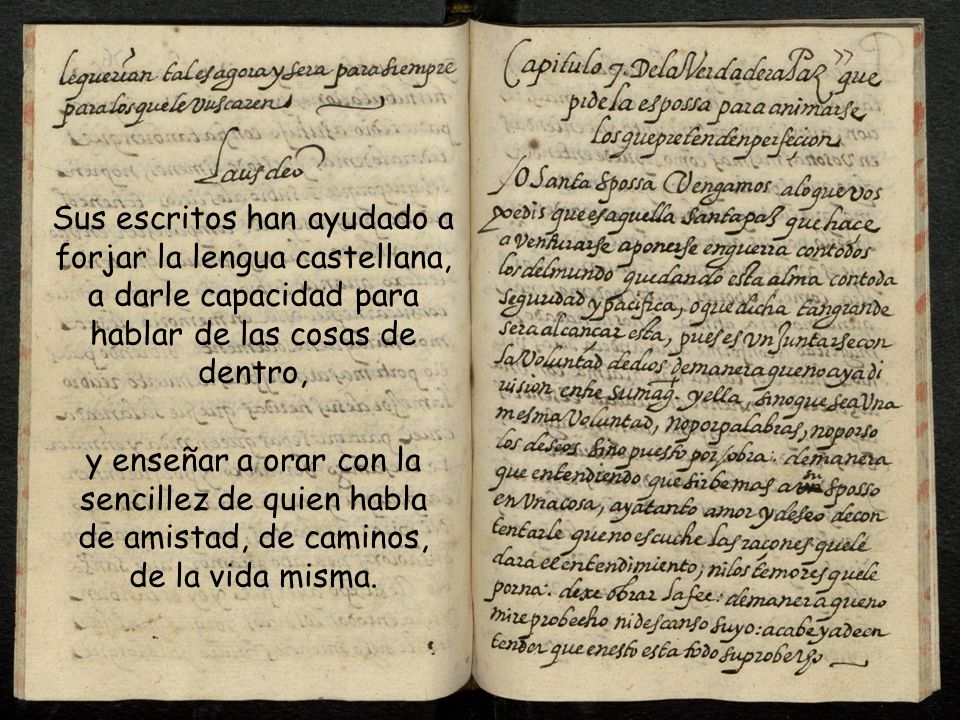 lequerian tal es agora y sera para siempre
para los que le vuscaren
Laus deo
Sus escritos han ayudado a
forjar la lengua castellana,
a darle capacidad para
hablar de las cosas de
dentro,
y enseñar a orar con la
sencillez de quien habla
de amistad, de caminos,
de la vida misma.
Capitulo. 7. De la Verdadera Paz que
pide la espossa para animarse
los que pretenden perfecion
O Santa Esposa Vengamos a lo que vos
pedis que es aquella santa paz que hace
aventurarse a ponerse en guerra con todos
los del mundo quedando esta alma con toda
seguridad y pacifica, o que dicha tan grande
sera alcançar esta, pues es un Juntarse con
la Voluntad de dios de manera que no aya di
vision entre su mag. y ella, sino que sea Una
mesma Voluntad, no por palabras, no por so
los deseos sino puesto por obra: de manera
que entendiendo que sirbe mas a su Esposso
en una cosa, aya tanto amor y deseo de con
tentarle que no escuche las raçones que le
dara el entendimiento, ni los temores que le
porna. dexe obrar la fee: de manera que no
mire probecho ni descanso suyo: acabe ya de en
tender que en esto esta todo su probecho